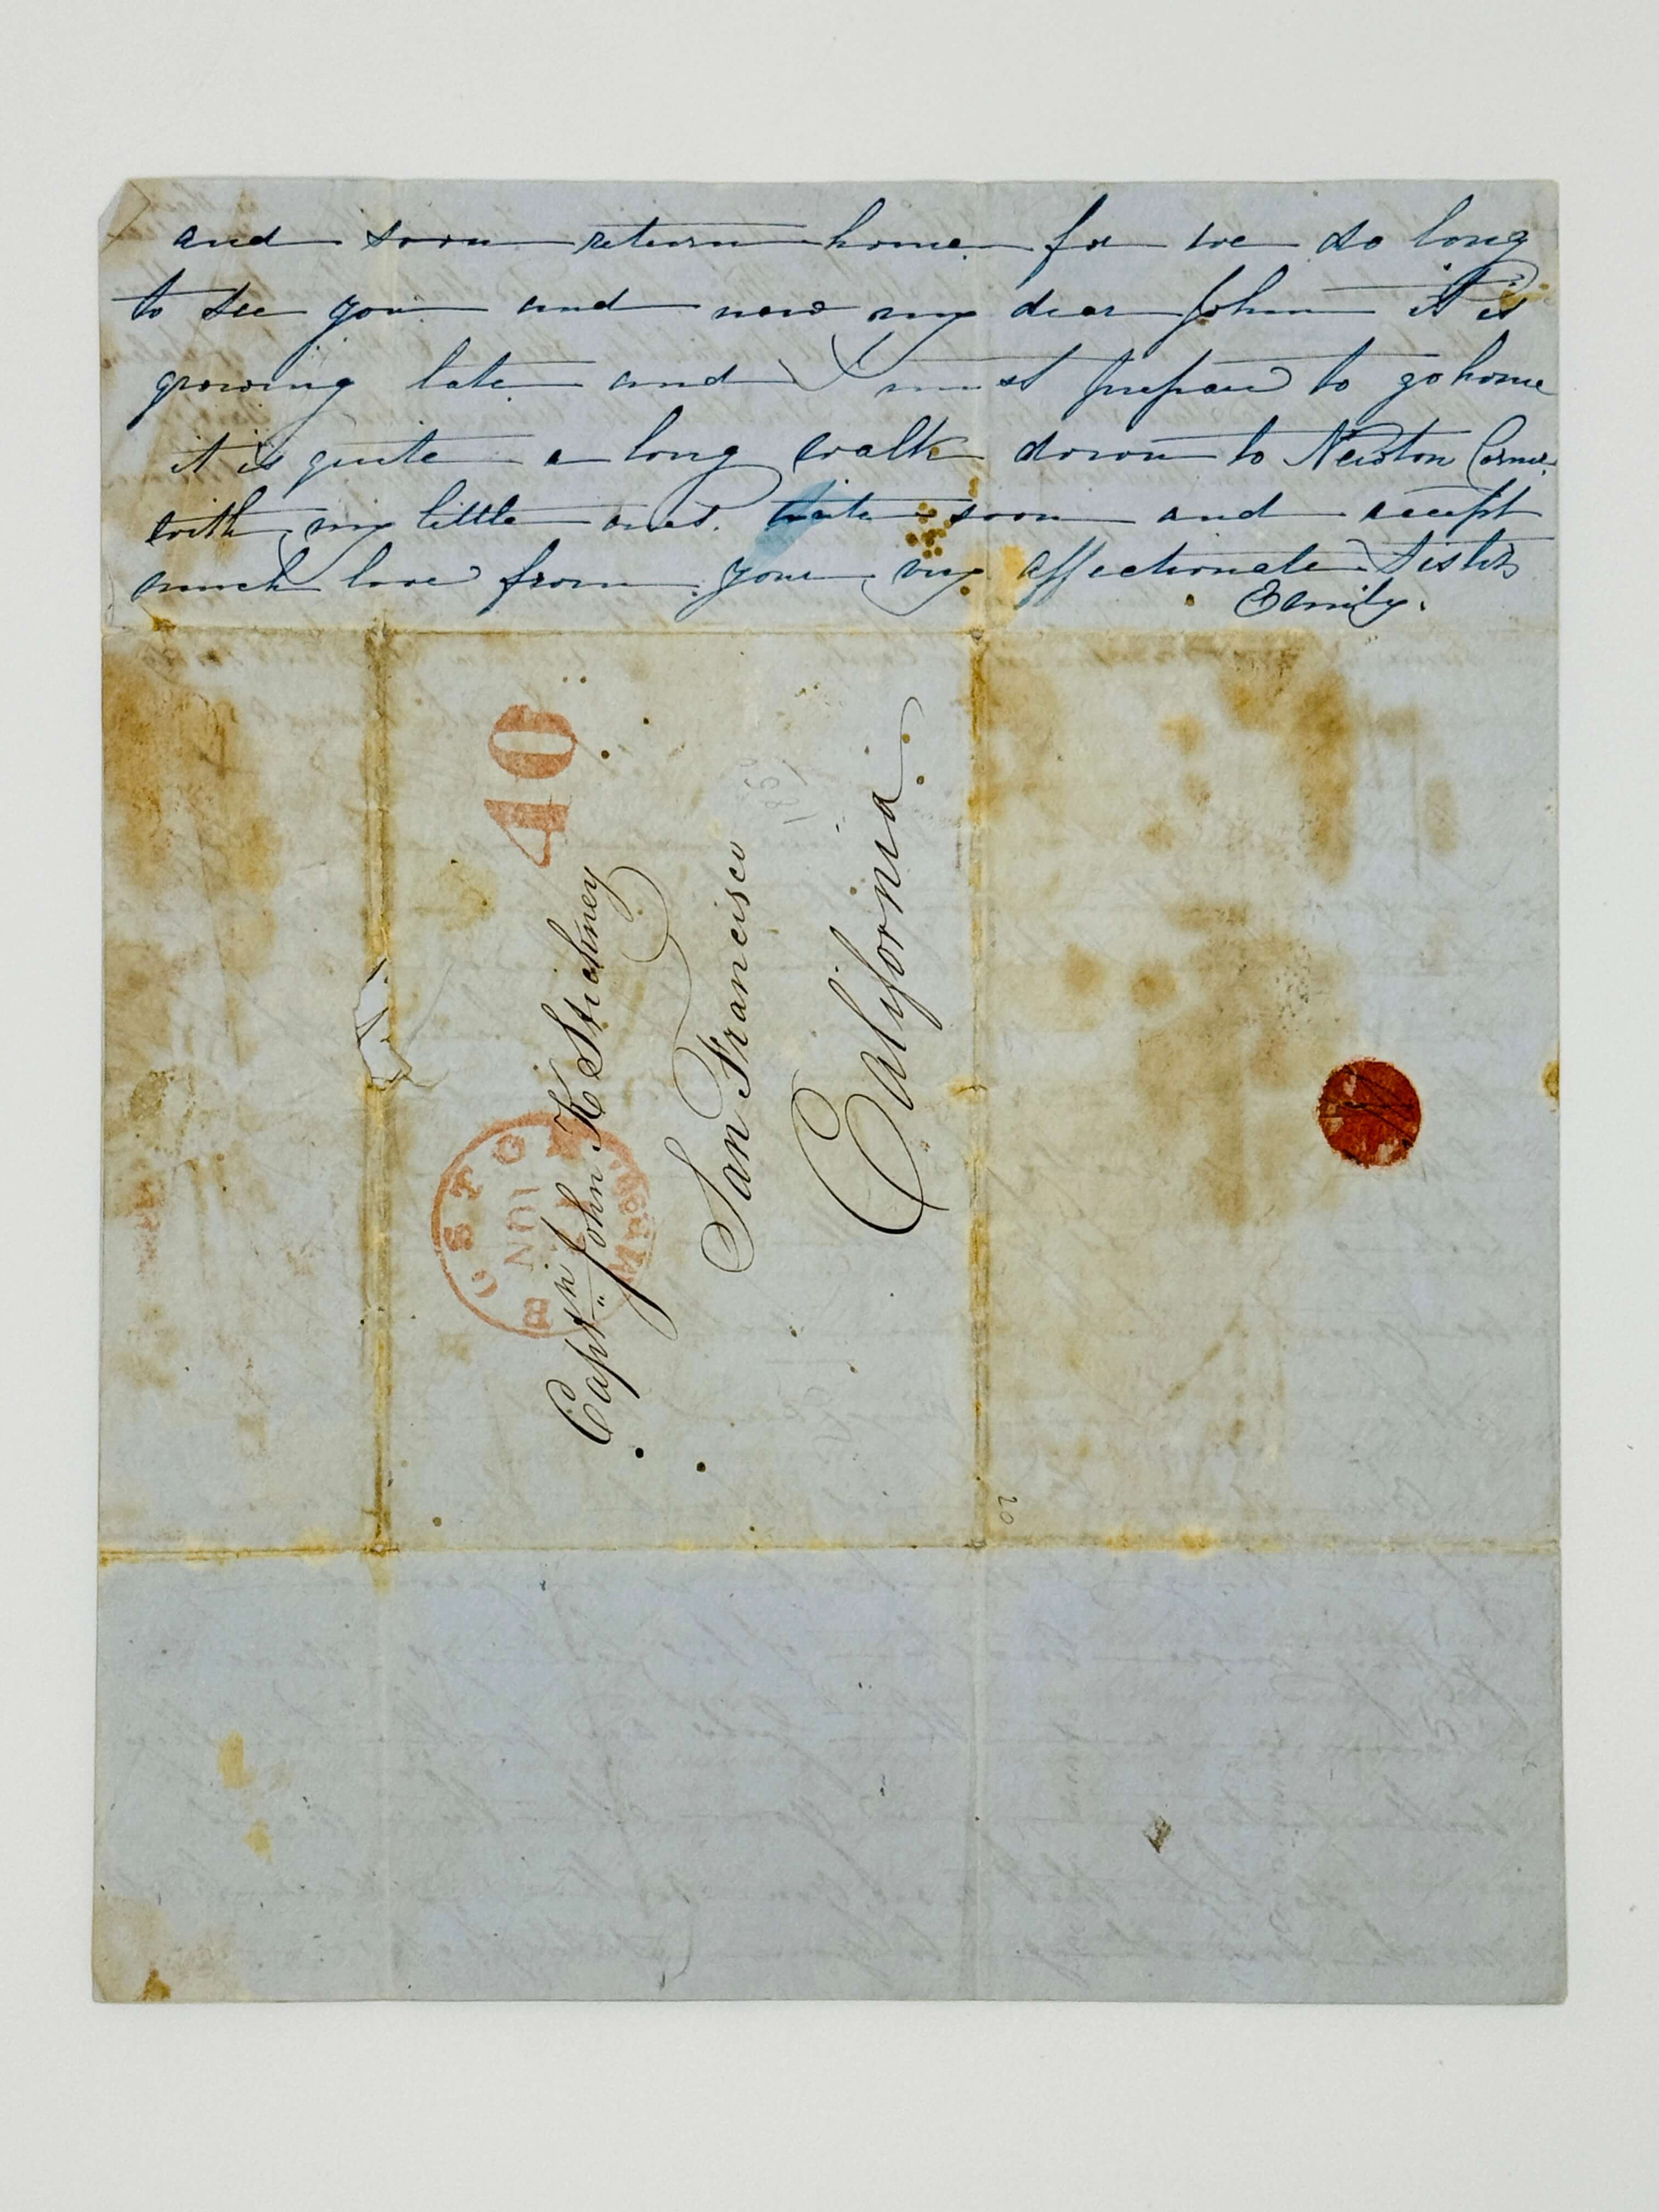 and soon return home for we do long
to see you and now my dear John it is
growing late and I must prepare to go home
it is quite a long walk down to Newton Corner
with my little ones. write soon and accept
much love from your very affectionate sister
Emily.
40
BOSTON
JUN
Mass.
Captn John K Stickney
San Francisco
California
185